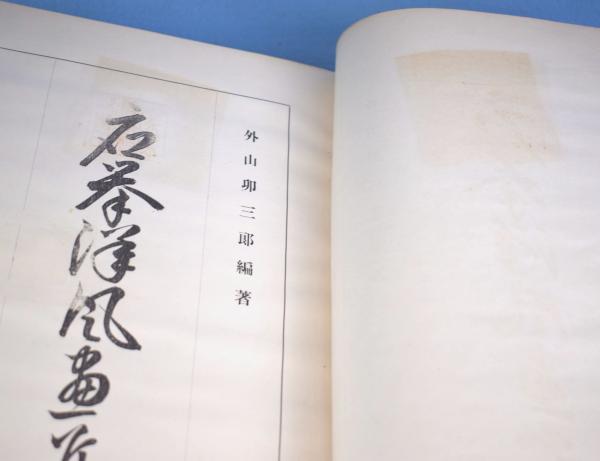 外山卯三郎編著
石洋風畫